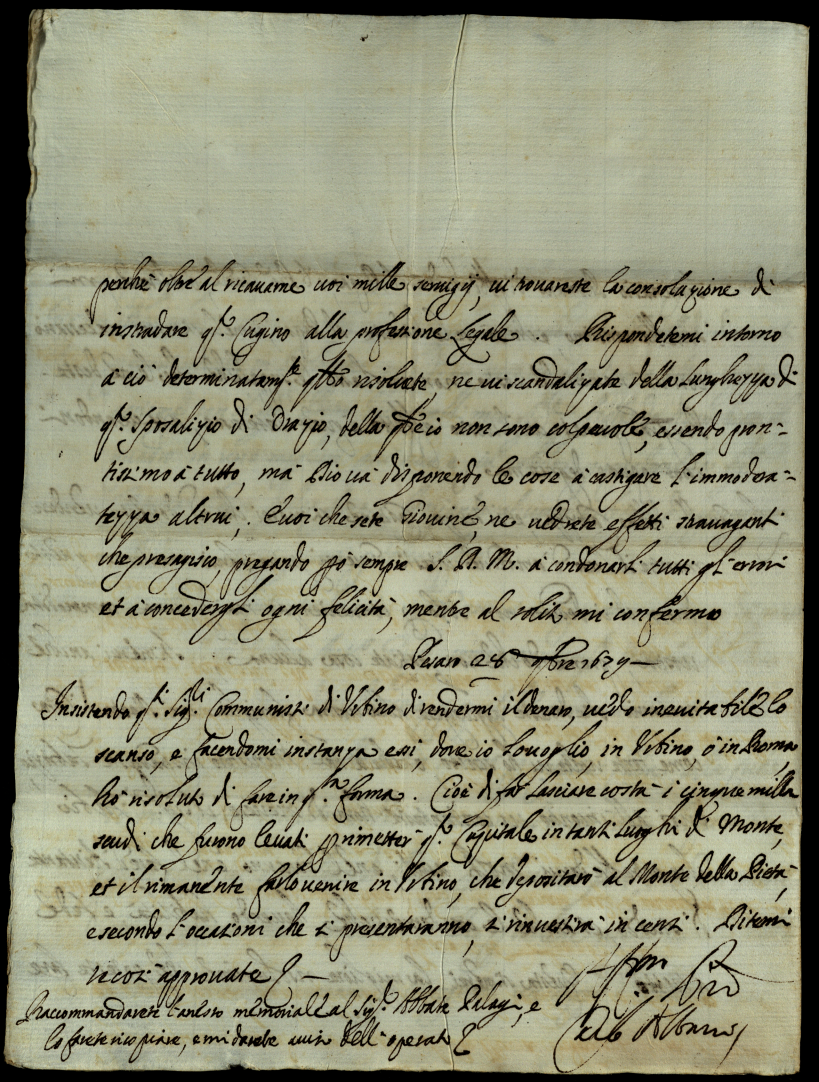 perchè oltre al ricavarne voi mille servigij, vi trovareste la consolazione di
instradare q.to Cugino alla professione Legale. Rispondetemi intorno
a ciò determinatam.te q.to risolvete, ne vi scandalizate della lunghezza di
q.to Sposalizio di Orazio, della q.le io non sono colpevole, essendo pron-
tissimo à tutto, mà Dio và disponendo le cose à castigare l'immodera-
tezza altrui, E voi che sete Giovine, ne vedrete effetti stravaganti
che presagisco, pregando però sempre S. D. M. à condonarli tutti gl'errori
et à concedergli ogni felicità, mentre al solito mi confermo
Pesaro 28 9bre 1679
Insistendo q.ti Sig.ri Communisti di Urbino di rendermi il denaro, vedo inevitabile lo
scanso, e facendomi instanza essi, dove io lo voglio, in Urbino, ò in Roma,
hò risoluto di fare in q.ta forma. Cioè di far lasciare costà i cinque milla
scudi che furono levati p rimetter q.to Capitale in tanti luoghi di Monte,
et il rimanente farlo venire in Urbino, che depositarò al Monte della Pietà,
e secondo l'occasioni che si presentaranno, si rinvestirà in censi. Ditemi
se così approvate
Raccommandarete l'annesso memoriale al Sig.r Abbate Pelagi, e
lo farete ricopiare, e mi darete aviso dell'operato
Aff.mo Zio
Albani